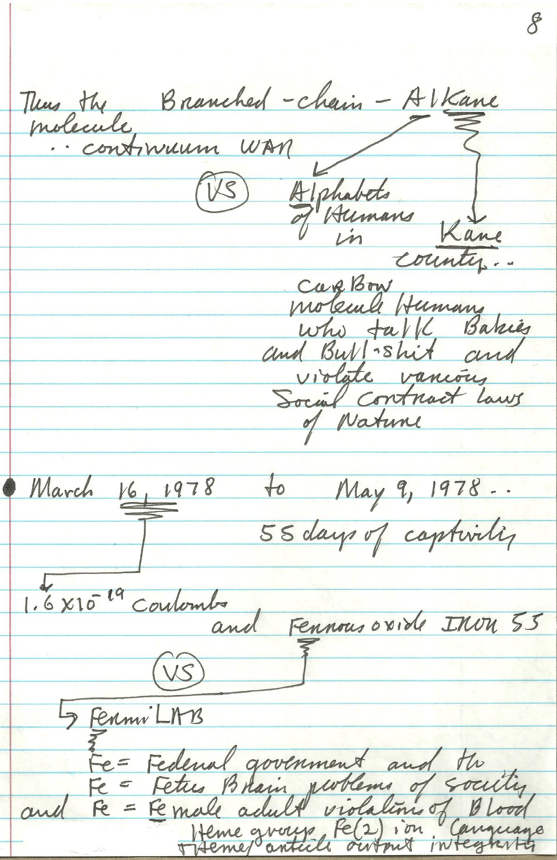 8
Thus the Branched-chain-Alkane
molecule
.. continuum WAR
VS Alphabets
of Humans
in Kane
county..
carBon
molecule Humans
who talk Babies
and Bull-shit and
violate various
Social Contract Laws
of Nature
March 16, 1978 to May 9, 1978..
55 days of captivity
1.6 x 10⁻¹⁹ Coulombs
and Ferrous oxide IRON 55
VS
FermiLAB
Fe = Federal goverment and the
Fe = Fetus Brain problems of society
and Fe = Female adult violations of Blood
Heme group, Fe(2) ion, Language
theme article output integrity